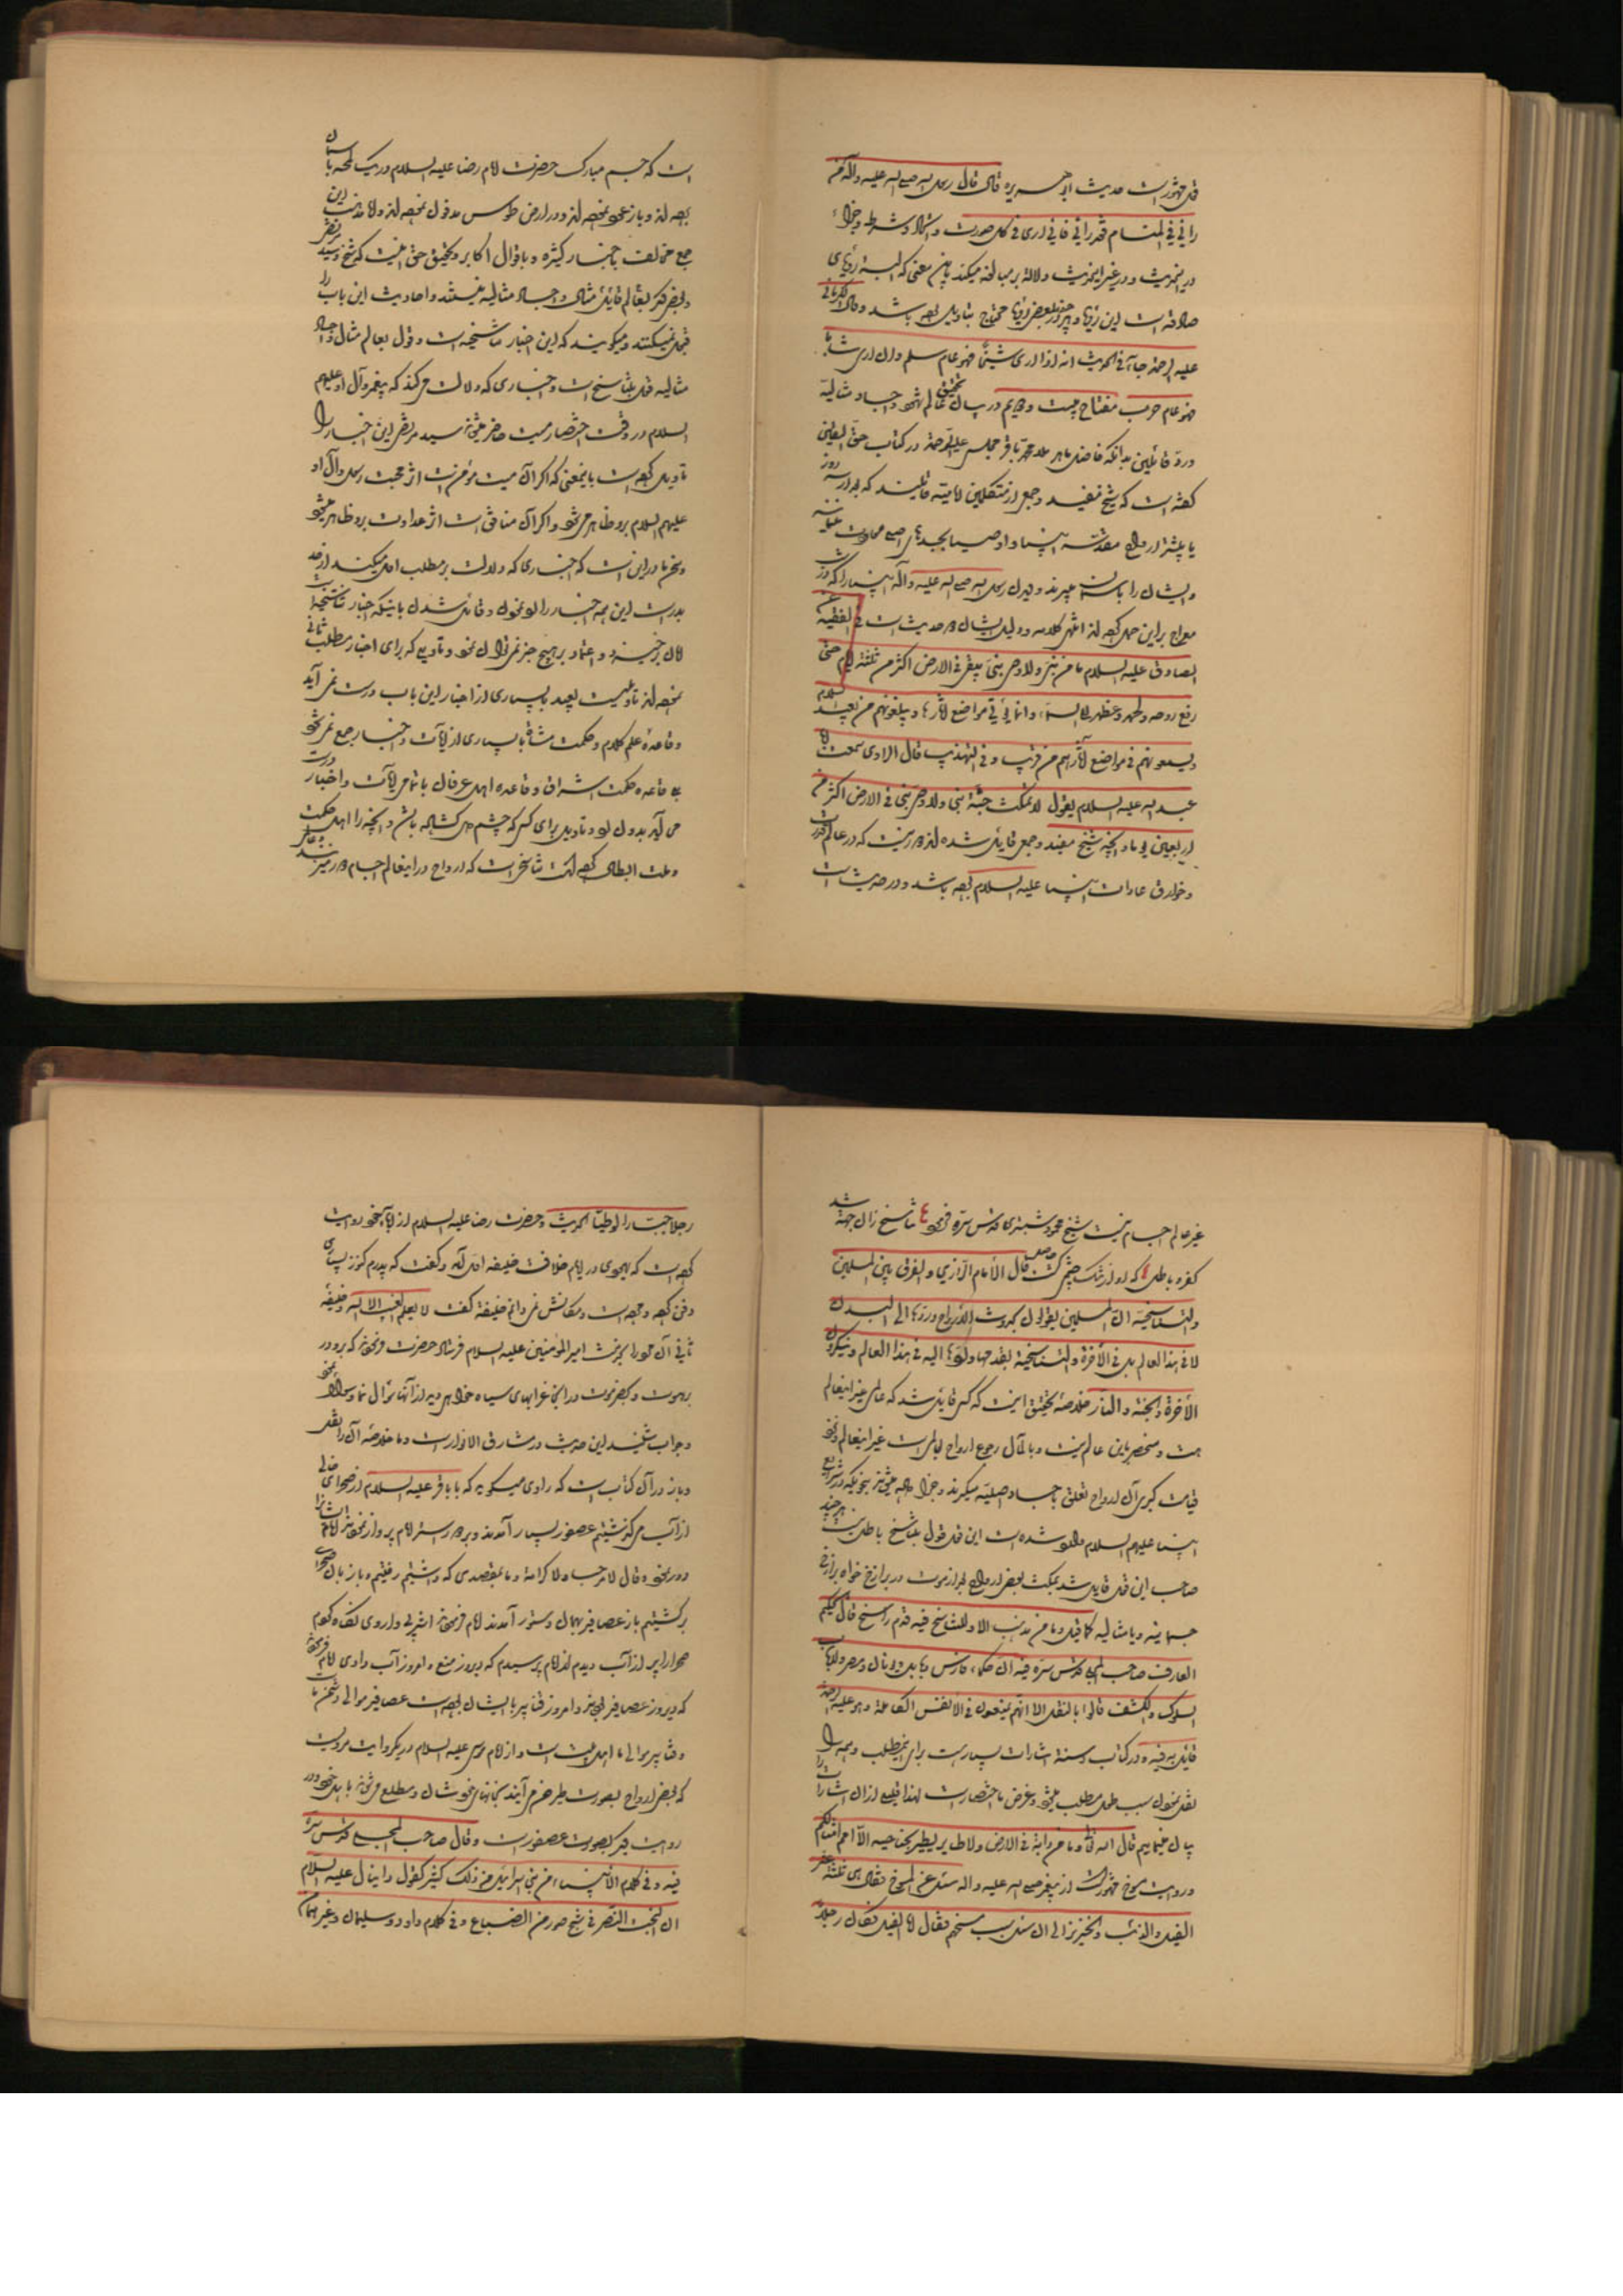 قول مشهور است حدیث ابو هریره قال قال رسول الله صلی الله علیه وآله من
رآنی فی المنام فقد رآنی فانی اری فی کل صورت و شرط و جزاء
در یقظیت و در غیر اینحدیث دلالة بر مبالغه میکند باین معنی که البته رؤیای
صادقه است این رؤیا و بعضی رؤیا محتاج بتاویل بوده باشد وقال الکرمانی
علیه الرحمة جاء فی الحدیث انه اذا اری شیئا فهو عام سلم وان اری شابا
فهو عام حرب مفتاح بیست و در بیان تحقیق عالم و اجساد مثالیة
ورد قائلین بدانکه فاضل ماهر ملا محمد باقر مجلسی علیه الرحمة در کتاب حق الیقین
گفته است که شیخ مفید و جمعی از متکلمین امامیه قائلند که بعد از سه روز
یا بیشتر ارواح مقدسه انبیا و اوصیا بجسدهای اصلی معاودت مینماید
و ایشان را بآسمان میبرند و دیدن رسول الله صلی الله علیه وآله انبیا را که در شب
معراج بر این حمل کرده اند انتهی کلامه و دلیل ایشان حدیث است فی الفقیه عن
الصادق علیه السلام ما من نبی ولا وصی نبی یبقی فی الارض اکثر من ثلثة ایام حتی
رفع روحه ولحمه وعظمه الی السماء وانما یؤتی مواضع آثارها ویبلغونهم من بعید السلام
ویسمعونهم فی مواضع آثارهم من قریب وفی التهذیب قال الراوی سمعت ابا
عبد الله علیه السلام یقول لا تمکث جثة نبی ولا وصی نبی فی الارض اکثر من
اربعین یوما و آنچه شیخ مفید و جمعی قایل شده اند در عالم قدرت
و خوارق عادات انبیا علیهم السلام بوده باشد و در حدیث است
است که جسم مبارک حضرت امام رضا علیه السلام در یک لمحه باسمان
برده اند و باز عود نموده اند و در ارض طوس مدفون نموده اند و اما مذهب این
جمع مخالف باخبار کثیره و باقوال اکابر و تحقیق حق نیست که شیخ و سید مرتضی
و بعضی دیگر بعالم قایل مثال و اجساد مثالیه نیستند و احادیث این باب را
قبول نمیکنند و میگویند که این اخبار تناسخیه است و قول بعالم مثال و اجساد
مثالیه قول بتناسخ است و اخباری که دلالت میکند که پیغمبر و آل او علیهم
السلام در وقت احتضار میت حاضر میشوند سید مرتضی این اخبار را
تاویل کرده است باینمعنی که اگر آن میت مؤمن است اثر محبت رسول وآل او
علیهم السلام بر او ظاهر میشود و اگر آن منافق است اثر عداوت بر او ظاهر میشود
و سخن ما در این است که اخباری که دلالت بر مطلب اول میکند از حد
بدر است این همه اخبار را لغو نمودن و قائل شدن باینکه اخبار تناسخیة است
و اعتماد بر هیچ جز نمیتوان نمود و تاویلی که برای اخبار مطلب ثانی
نموده اند تاویلیست بعید بسیاری از اخبار این باب درست نمی آید
و قاعدهٔ علم کلام و حکمت مشاء با بسیاری از آیات و اخبار جمع نمیشود
بلکه قاعده حکمت اشراق و قاعده اهل عرفان با تمامی آیات و اخبار درست
می آید بدون لغو و تاویل برای کسی که چشم دل گشاده باشد و آنچه را اهل حکمت
و ملت ابطال کرده اند تناسخی است که ارواح در اینعالم اجسام و در غیر
غیر عالم اجسام نیست شیخ محمود شبستری قدس سره فرموده تناسخ زان جهة شد
کفر و باطل که او از تنگ چشمی گشت حاصل قال الامام الرازی والفرق بین المسلمین
والتناسخیة ان المسلمین یقولون بحدوث الارواح وردها الی البدن
لا فی هذا العالم بل فی الآخرة والتناسخیة بقدمها وردها الیه فی هذا العالم وینکرون
الآخرة والجنة والنار خلاصهٔ تحقیق اینست که کسی قایل شد که عالمی غیر اینعالم
هست و منحصر باین عالم نیست و بالمآل رجوع ارواح بعالمی است غیر اینعالم و در
قیامت کبری آن ارواح تعلق باجساد اصلیه میگیرند و جزا داده میشوند بنحویکه در شرایع
انبیا علیهم السلام وارد شده است این قول قول بتناسخ باطل نیست هر چند
صاحب این قول قایل شد بمکث بعض ارواح بعد از موت در برازخ خواه برازخ
جسمانیه و یا مثالیه کما قیل و ما من مذهب الا وللتناسخ فیه قدم راسخ قال الحکیم
العارف صاحب المجلی قدس سره فیه ان حکماء فارس وبابل ویونان ومصر وارباب
السلوک والکشف قالوا بالنقل الا انهم یمنعون فی الانفس الکاملة وهو علیه الرحمة
قایل به فیه و در کتاب و سنة اشارات بسیارست برای اینمطلب و همه را
نقل نمودن سبب طول مطلب میشود و غرض ما اختصار است لهذا قلیلی از آن اشارات را
بیان مینمایم قال الله تعالی وما من دابة فی الارض ولا طایر یطیر بجناحیه الا امم امثالکم
و روایت مسوخ مشهور است از پیغمبر صلی الله علیه واله سئل عن المسوخ فقال هی ثلثة عشر
الفیل والدب والخنزیر الی ان سئل سبب مسخهم فقال اما الفیل فکان رجلا
رجلا جبارا لوطیا الحدیث و حضرت رضا علیه السلام از آباء خود روایت
کرده است که یهودی در ایام خلافت خلیفه اول آمد و گفت که پدرم کنوز بسیاری
دفن کرده و مرده است و مکانش نمی دانم خلیفه گفت لا یعلم الغیب الا الله و خلیفه
ثانی آن یهود را بخدمت امیر المؤمنین علیه السلام فرستاد حضرت فرمودند که برو در
برهوت و حضرموت در آنجا غرابهای سیاه خواهی دید از آنها سؤال نما و سؤال نمود
و جواب شنید این حدیث در مشارق الانوار است و ما خلاصهٔ آن را نقل
و باز در آن کتاب است که راوی میگوید که با باقر علیه السلام از صحرای خالی
از آب میگذشتیم عصفور بسیار آمدند و بر دور ستر امام پرواز نمودند امام ایشان را
دور نموده و قال لا مرحبا ولا کرامة و ما بمقصدی که داشتیم رفتیم و باز بآن صحرا
برگشتیم باز عصافیر بهمان دستور آمدند امام فرمودند اشربی و اروی نگاه کردم
صحرا را پر از آب دیدم از امام پرسیدم که دیروز منع و امروز آب دادی امام فرمود
که دیروز عصافیر بودند و امروز قنابر با ایشان بوده است عصافیر موالی دشمن ما
و قنابر موالی ما اهل بیت است و از امام موسی علیه السلام در دیگر روایت مرویست
که بعض ارواح بصورت طیر حضر می آیند بخانهای خویشان و مطلع میشوند با اهل خود و در
روایت دیگر بصورت عصفور است وقال صاحب المجلی قدس سره
فیه وفی کلام الانبیاء من بنی اسرائیل من ذلک کثیر کقول دانیال علیه السلام
ان البخت النصر فی شبح صور من السباع وفی کلام داود وسلیمان وغیرهما